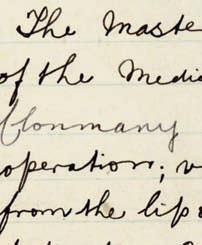 The Maste
of the Medic
Clonmany
operation; v
from the lip o